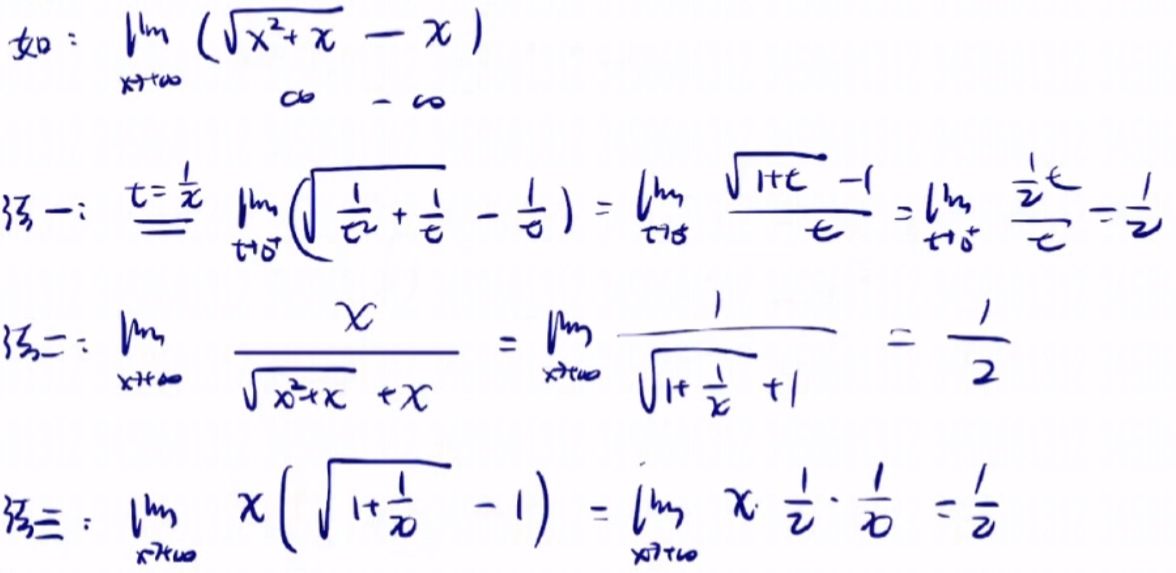 如: lim x→+∞ (√(x²+x) − x)
∞ − ∞
法一: t=1/x lim t→0⁺ (√(1/t² + 1/t) − 1/t) = lim t→0⁺ (√(1+t) −1)/t = lim t→0⁺ (½t)/t = 1/2
法二: lim x→+∞ x/(√(x²+x) +x) = lim x→+∞ 1/(√(1+1/x) +1) = 1/2
法三: lim x→+∞ x(√(1+1/x) −1) = lim x→+∞ x·1/2·1/x = 1/2